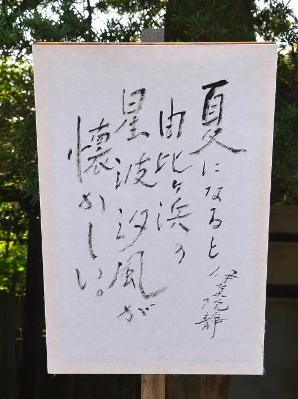 夏になると
由比ヶ浜の
星波汐風が
懐かしい。
伊集院静